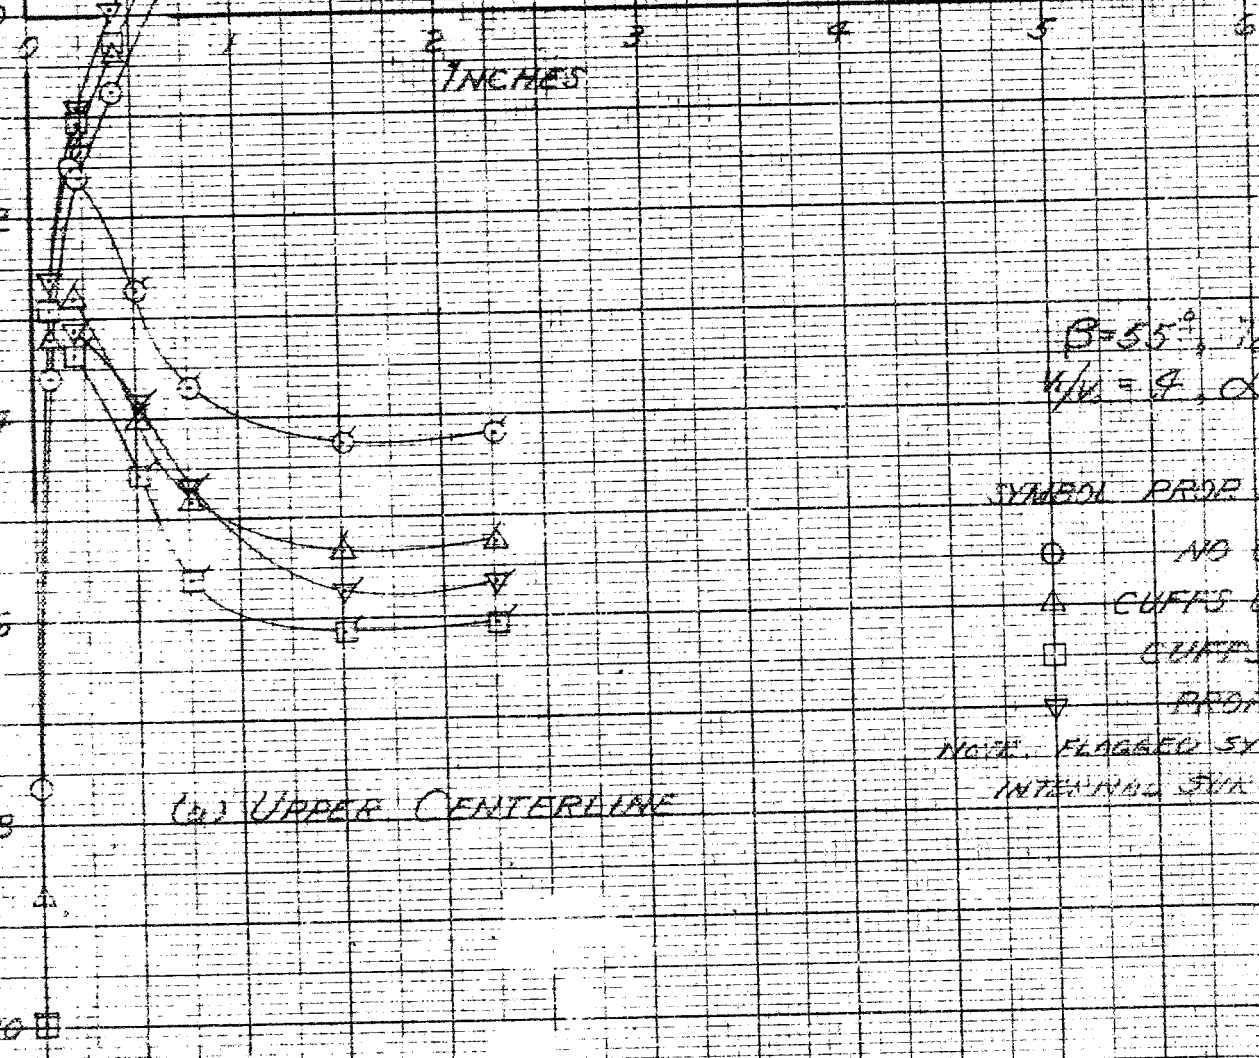 0 1 2 3 4 5 6
INCHES
2
β=55°,
V₁/V₀ = .4, α
4
SYMBOL PROP
○ NO
△ CUFFS
6
□ CUFFS
▽ PROP
NOTE. FLAGGED SY
INTERNAL SUR
(a) UPPER CENTERLINE
8
10